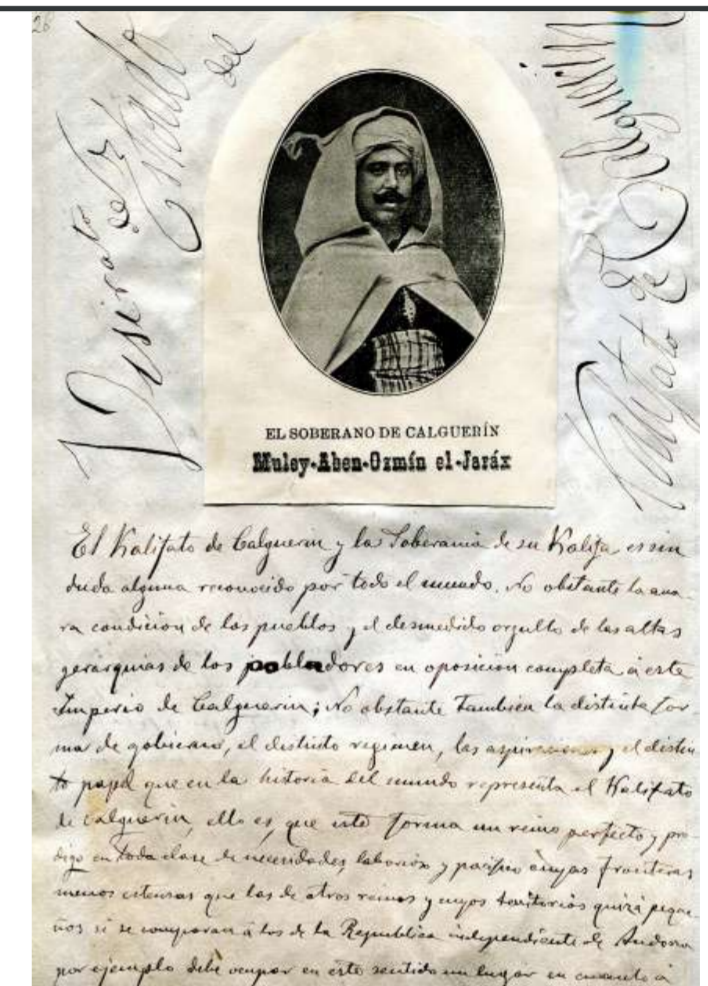 28
Visirato de Estado del
Kalifato de Calguerin
EL SOBERANO DE CALGUERÍN
Muley-Aben-Ozmín el-Jaráx
El Kalifato de Calguerin y la Soberania de su Kalifa es sin
duda alguna reconocido por todo el mundo. No obstante la ava-
ra condicion de los pueblos y el desmedido orgullo de las altas
gerarquias de los pobladores en oposicion completa á este
Imperio de Calguerin; No obstante tambien la distinta for
ma de gobierno, el distinto regimen, las aspiraciones y el distin
to papel que en la historia del mundo representa el Kalifato
de Calguerin, ello es, que este forma un reino perfecto y pro-
digo en toda clase de necesidades, laborioso y pacifico cuyas fronteras
menos estensas que las de otros reinos y cuyos territorios quizá peque-
ños si se comparan á los de la Republica independiente de Andorra
por ejemplo debe ocupar en este sentido un lugar en cuanto á